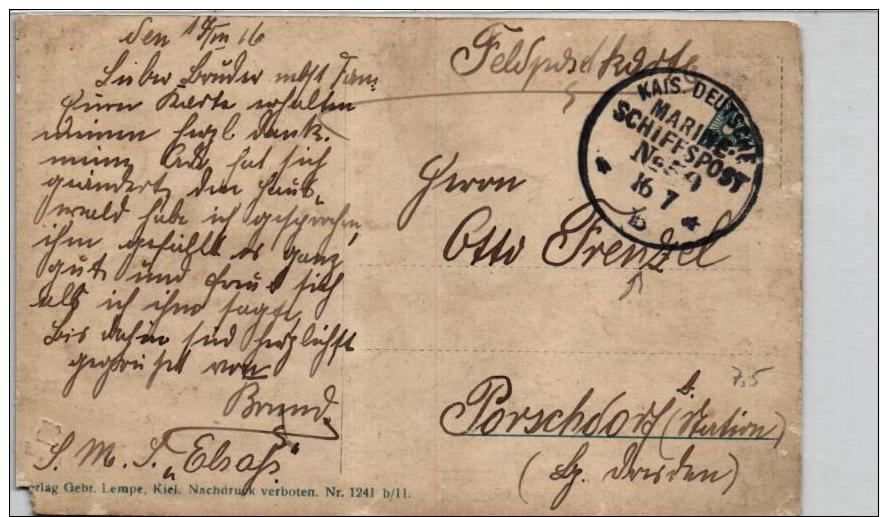 den 1 /VII 16
Lieber Bruder nebst Fam
Eure Karte erhalten
meinen herzl dank.
meine Adr hat sich
geändert, den Haus
wald habe ich gesprochen,
ihm gefällt es ganz
gut und freut sich
als ich ihm sagte,
bis dahin seid herzlichst
gegrüßt von
S. M. S. „Elsaß"
Verlag Gebr. Lempe, Kiel. Nachdruck verboten. Nr. 1241 b/11.
Feldpostkarte
KAIS. DEUTSCHE
MARINE-
SCHIFFSPOST
No 59
16 7
Herrn
Otto Frenzel
Porschdorf (Station)
(Bz. Dresden)
7,5